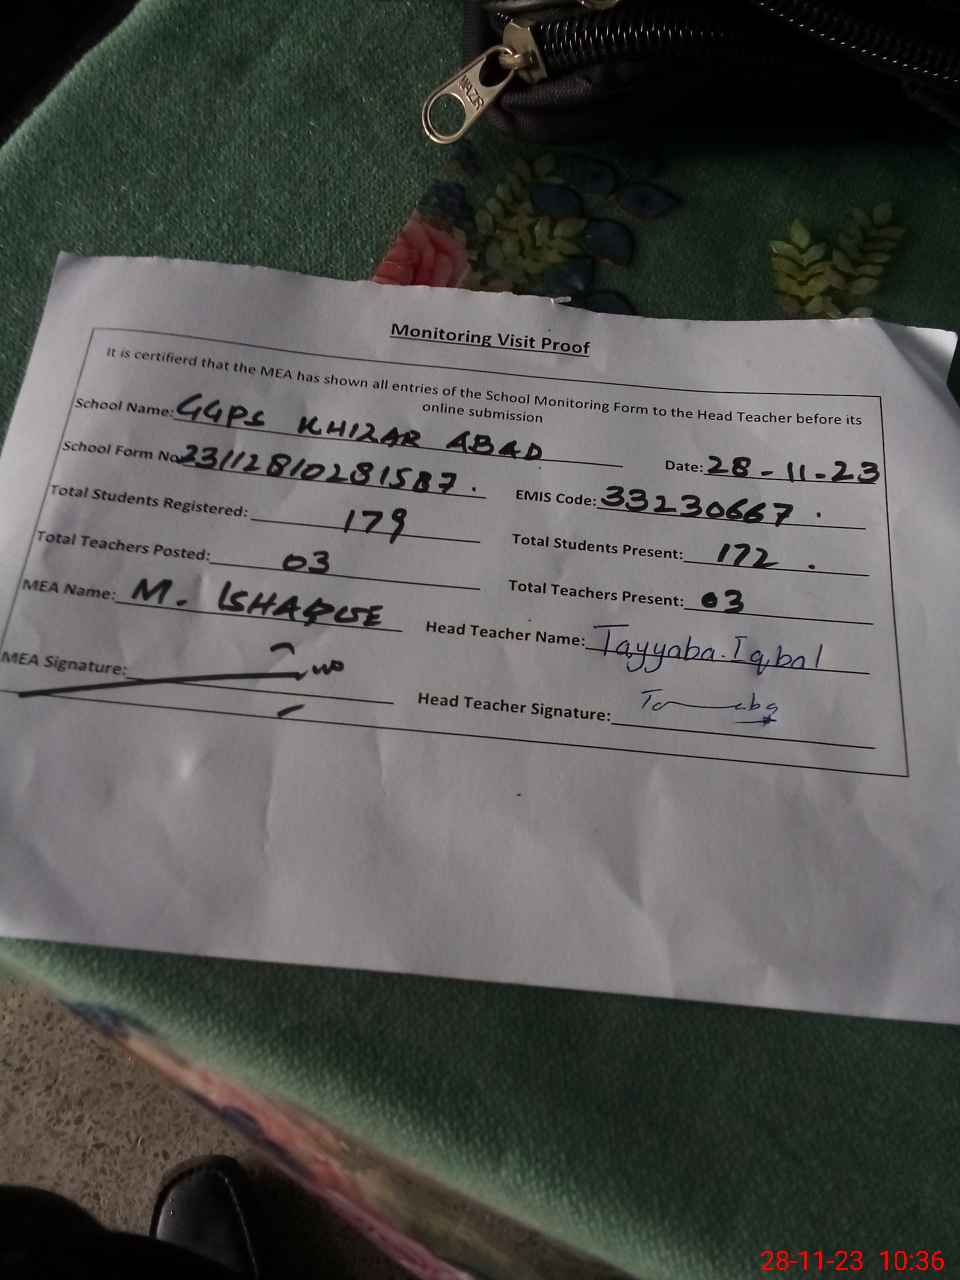 NAZR
Monitoring Visit Proof
It is certifierd that the MEA has shown all entries of the School Monitoring Form to the Head Teacher before its
online submission
School Name: GGPS KHIZAR ABAD
Date: 28-11-23
School Form No 23112810281587.
EMIS Code: 33230667.
Total Students Registered: 179
Total Students Present: 172.
Total Teachers Posted: 03
Total Teachers Present: 03
MEA Name: M. ISHAQUE
Head Teacher Name: Tayyaba.Iqbal
MEA Signature:
Head Teacher Signature:
28-11-23 10:36